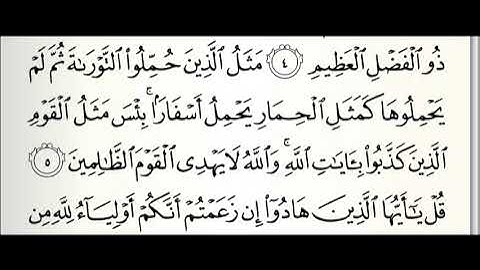 ذُو ٱلْفَضْلِ ٱلْعَظِيمِ ٤ مَثَلُ ٱلَّذِينَ حُمِّلُوا۟ ٱلتَّوْرَىٰةَ ثُمَّ لَمْ
يَحْمِلُوهَا كَمَثَلِ ٱلْحِمَارِ يَحْمِلُ أَسْفَارًۢا ۚ بِئْسَ مَثَلُ ٱلْقَوْمِ
ٱلَّذِينَ كَذَّبُوا۟ بِـَٔايَـٰتِ ٱللَّهِ ۚ وَٱللَّهُ لَا يَهْدِى ٱلْقَوْمَ ٱلظَّـٰلِمِينَ ٥
قُلْ يَـٰٓأَيُّهَا ٱلَّذِينَ هَادُوٓا۟ إِن زَعَمْتُمْ أَنَّكُمْ أَوْلِيَآءُ لِلَّهِ مِن